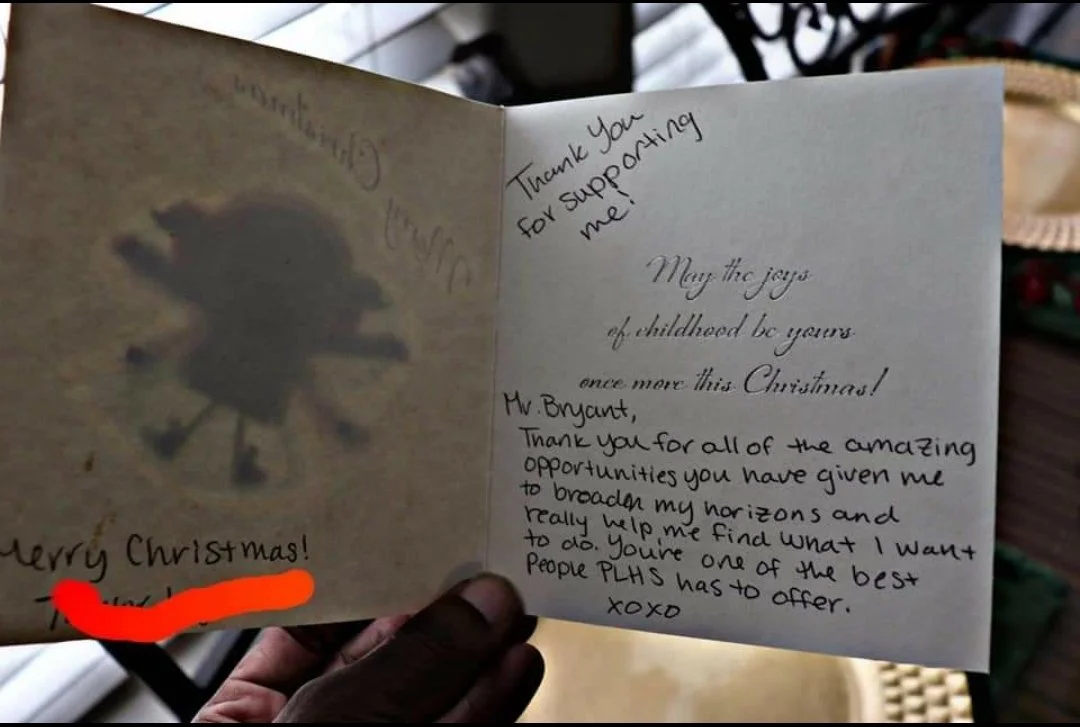 Merry Christmas!
Thank You
for supporting
me!
May the joys
of childhood be yours
once more this Christmas!
Mr. Bryant,
Thank you for all of the amazing
opportunities you have given me
to broaden my horizons and
really help me find what I want
to do. You're one of the best
People PLHS has to offer.
xoxo
Merry Christmas!